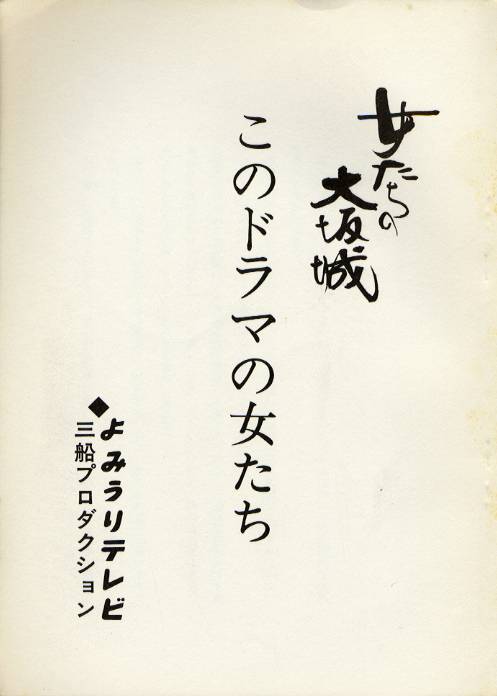 女たちの
大坂城
このドラマの女たち
◆よみうりテレビ
三船プロダクション